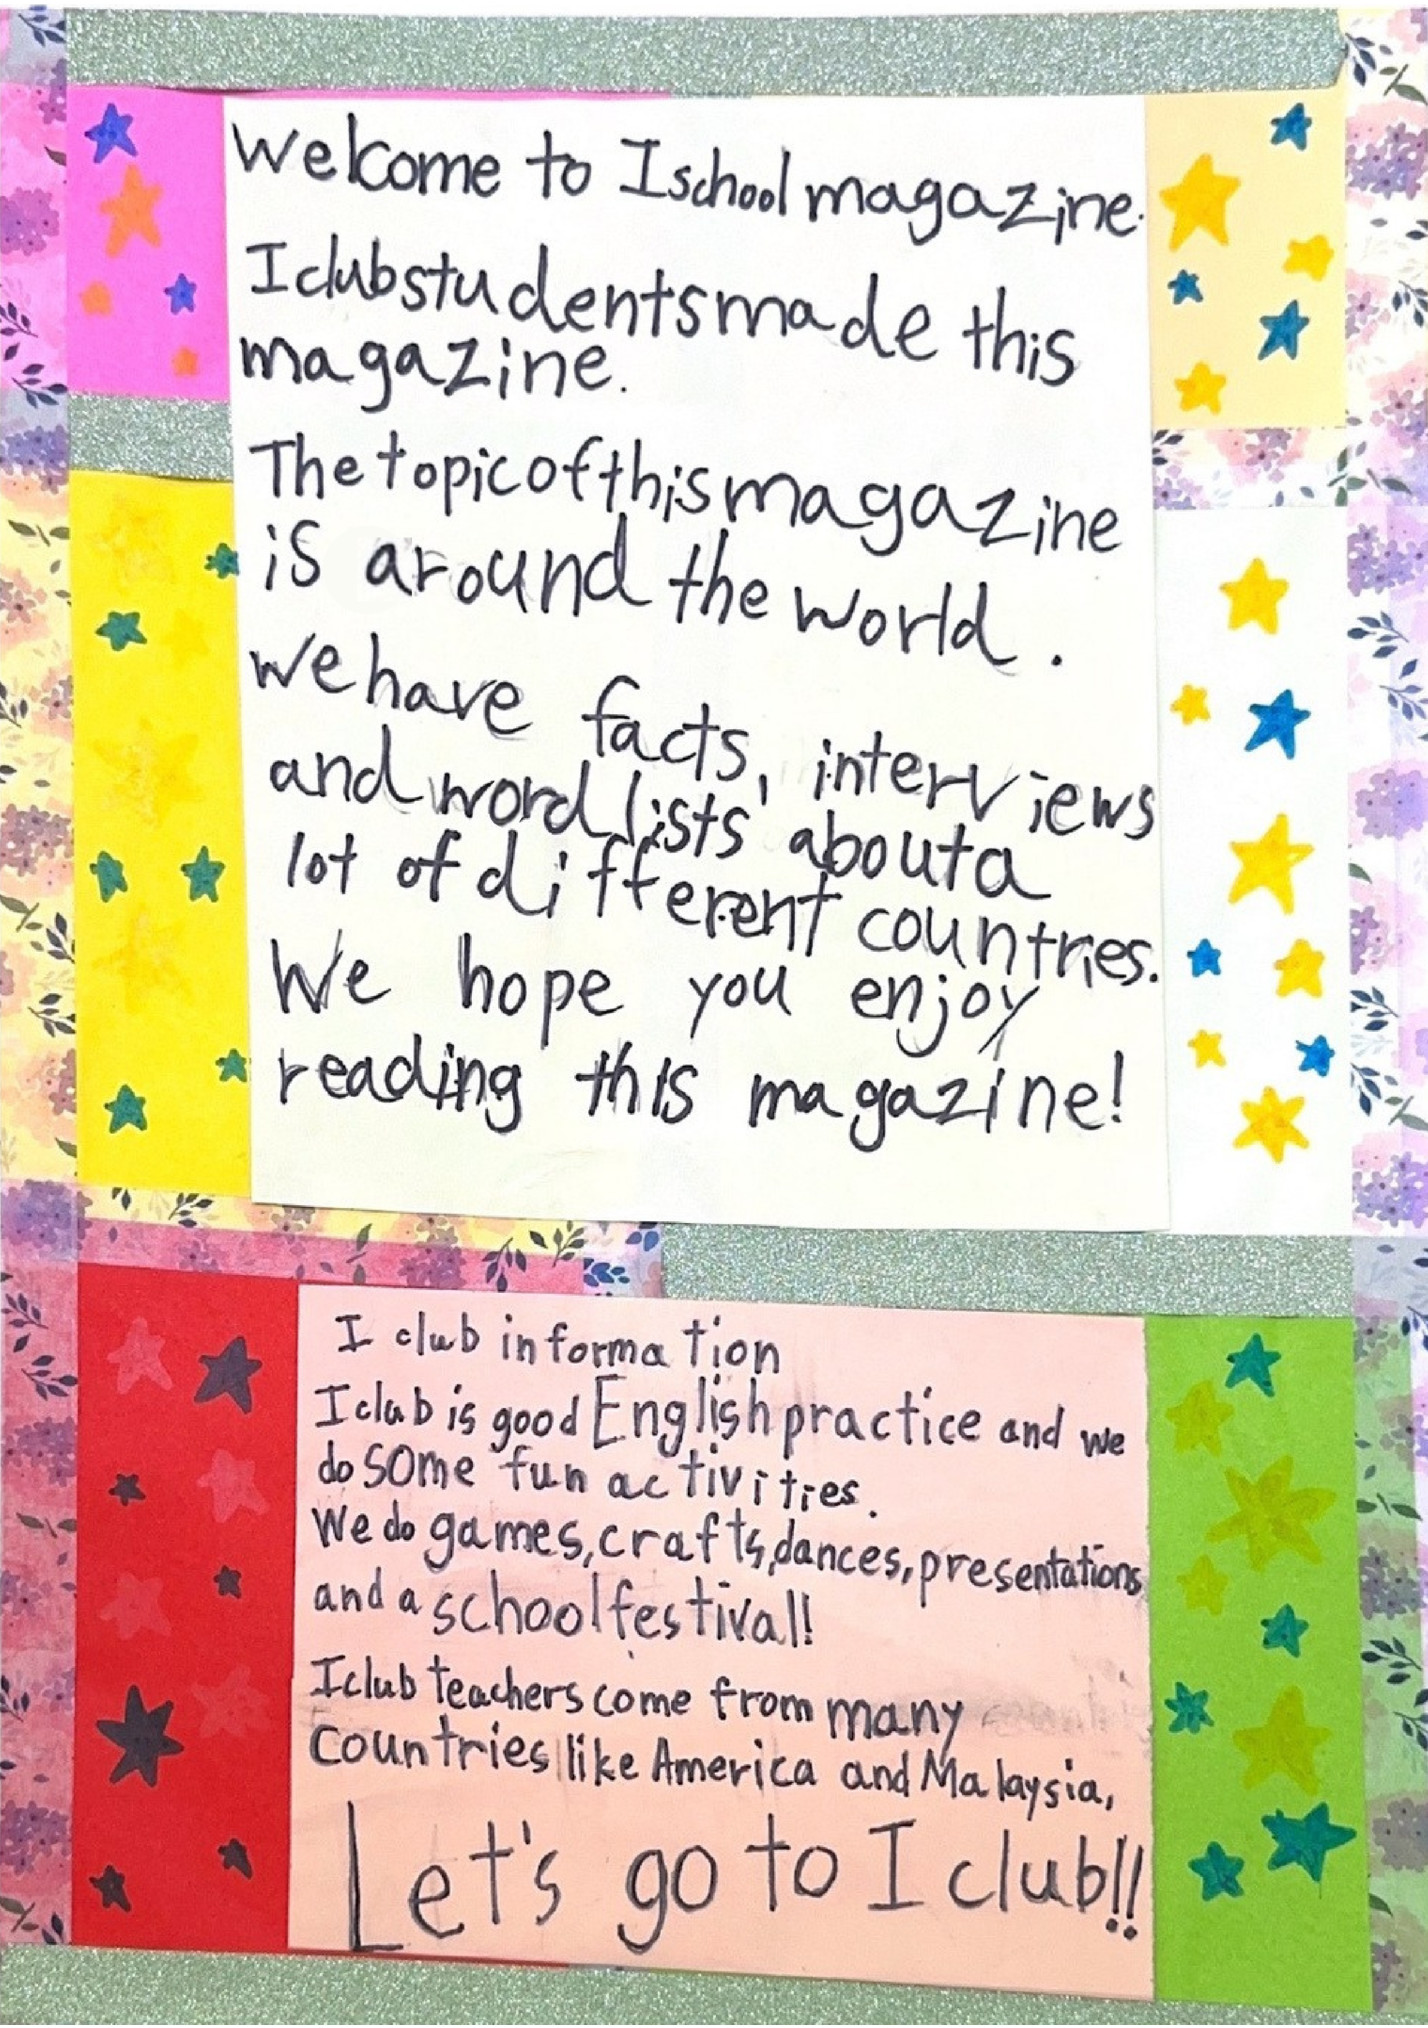 Welcome to I school magazine.
I club students made this
magazine.
The topic of this magazine
is around the world.
We have facts, interviews
and word lists about a
lot of different countries.
We hope you enjoy
reading this magazine!
I club information
I club is good English practice and we
do some fun activities.
We do games, crafts, dances, presentations
and a school festival!
I club teachers come from many
countries like America and Malaysia,
Let's go to I club!!